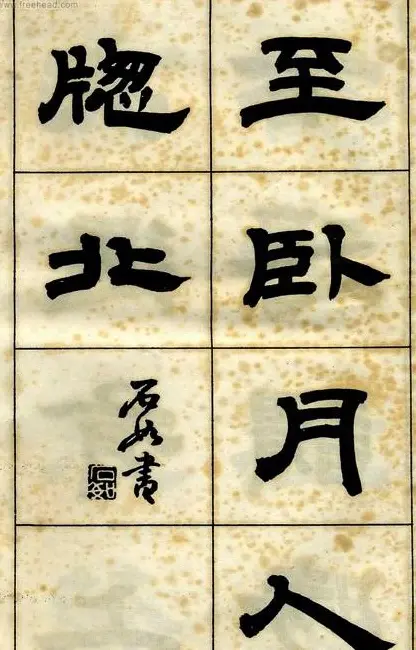 www.freehead.com
至卧月人
牎北
石如書
石如